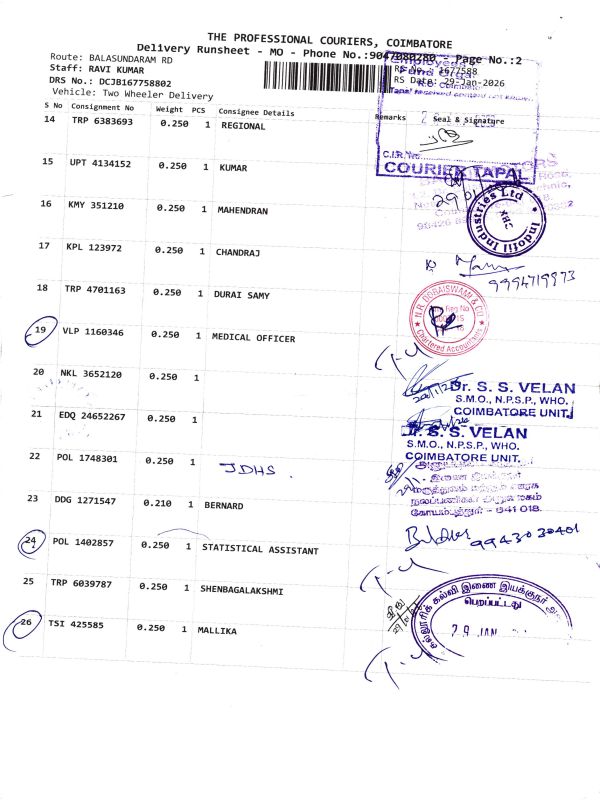 THE PROFESSIONAL COURIERS, COIMBATORE
Delivery Runsheet - MO - Phone No.:9047080280 Page No.:2
Route: BALASUNDARAM RD
Staff: RAVI KUMAR
RS No.: 1677588
DRS No.: DCJB167758802
RS Date: 29-Jan-2026
Vehicle: Two Wheeler Delivery
S No Consignment No Weight PCS Consignee Details Remarks Seal & Signature
14 TRP 6383693 0.250 1 REGIONAL
C.I.R. No.
COURIER TAPAL
15 UPT 4134152 0.250 1 KUMAR
16 KMY 351210 0.250 1 MAHENDRAN
Indofil Industries Ltd
CBE
17 KPL 123972 0.250 1 CHANDRAJ
9994719873
18 TRP 4701163 0.250 1 DURAI SAMY
N.R. DORAISWAMI & CO
Chartered Accountants
19 VLP 1160346 0.250 1 MEDICAL OFFICER
20 NKL 3652120 0.250 1
Dr. S. S. VELAN
S.M.O., N.P.S.P., WHO.
COIMBATORE UNIT.
21 EDQ 24652267 0.250 1
Dr. S. S. VELAN
S.M.O., N.P.S.P., WHO.
COIMBATORE UNIT.
22 POL 1748301 0.250 1 JDHS.
இணை இயக்குநர்
மருத்துவம் மற்றும் ஊரக
நலப்பணிகள்
கோயம்புத்தூர் - 641 018.
23 DDG 1271547 0.210 1 BERNARD
9943030401
24 POL 1402857 0.250 1 STATISTICAL ASSISTANT
25 TRP 6039787 0.250 1 SHENBAGALAKSHMI
கல்லூரிக் கல்வி இணை இயக்குநர்
பெறப்பட்டது
29 JAN
26 TSI 425585 0.250 1 MALLIKA